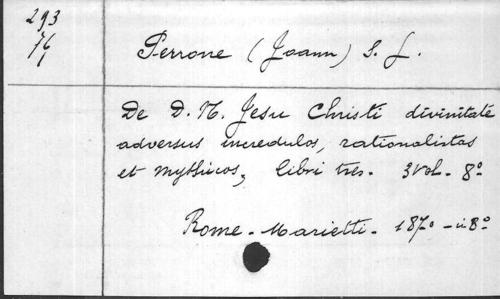 293
76
Perrone (Joann) S. J.
De D. N. Jesu Christi divinitate
adversus incredulos, rationalistas
et mythicos, libri tres. 3 vol. 8°
Rome - Marietti - 1870 - in 8°